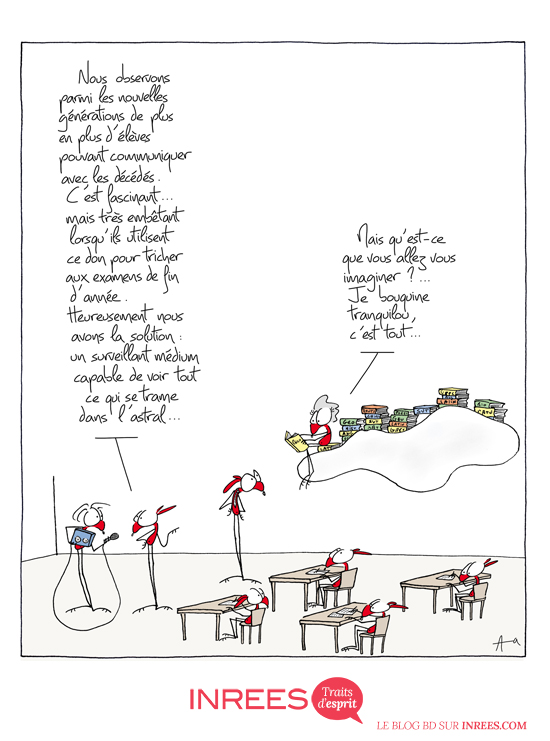 Nous observons
parmi les nouvelles
générations de plus
en plus d'élèves
pouvant communiquer
avec les décédés.
C'est fascinant...
mais très embêtant
lorsqu'ils utilisent
ce don pour tricher
aux examens de fin
d'année.
Heureusement nous
avons la solution :
un surveillant médium
capable de voir tout
ce qui se trame
dans l'astral...
Mais qu'est-ce
que vous allez vous
imaginer ?...
Je bouquine
tranquilou,
c'est tout...
INREES
Traits
d'esprit
LE BLOG BD SUR INREES.COM